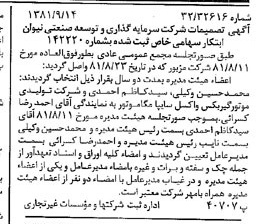 شماره ۳۲/۳۲۶۱۶ ۱۳۸۱/۹/۱۴
آگهی تصمیمات شرکت سرمایه گذاری و توسعه صنعتی نیوان
ابتکار سهامی خاص ثبت شده بشماره ۱۴۲۲۲۰
طبق صورتجلسه مجمع عمومی عادی بطور فوق‌العاده مورخ
۸۱/۸/۱۱ شرکت مزبور که در تاریخ ۸۱/۸/۲۳ واصل گردید:
اعضاء هیئت مدیره بمدت دو سال بقرار ذیل انتخاب گردیدند:
محمدحسین وکیلی، سیدکاظم احمدی و شرکت تولیدی
موتور گیربکس واکسل سایپا مگاموتور به نمایندگی آقای احمدرضا
کسرائی. بموجب صورتجلسه هیئت مدیره مورخ ۸۱/۸/۱۱ آقای
سیدکاظم احمدی بسمت رئیس هیئت مدیره و محمدحسین وکیلی
بسمت نایب رئیس هیئت مدیره و احمدرضا کسرائی بسمت
مدیرعامل تعیین گردیدند و امضاء کلیه اوراق و اسناد تعهدآور از
جمله چک و سفته و برات و غیره بامضاء مدیرعامل و یکی از اعضاء
هیئت مدیره و در غیاب مدیرعامل با امضاء دو نفر از اعضاء هیئت
مدیره همراه بامهر شرکت معتبر است.
پ ۴۰۷۰۷ اداره ثبت شرکتها و مؤسسات غیرتجاری